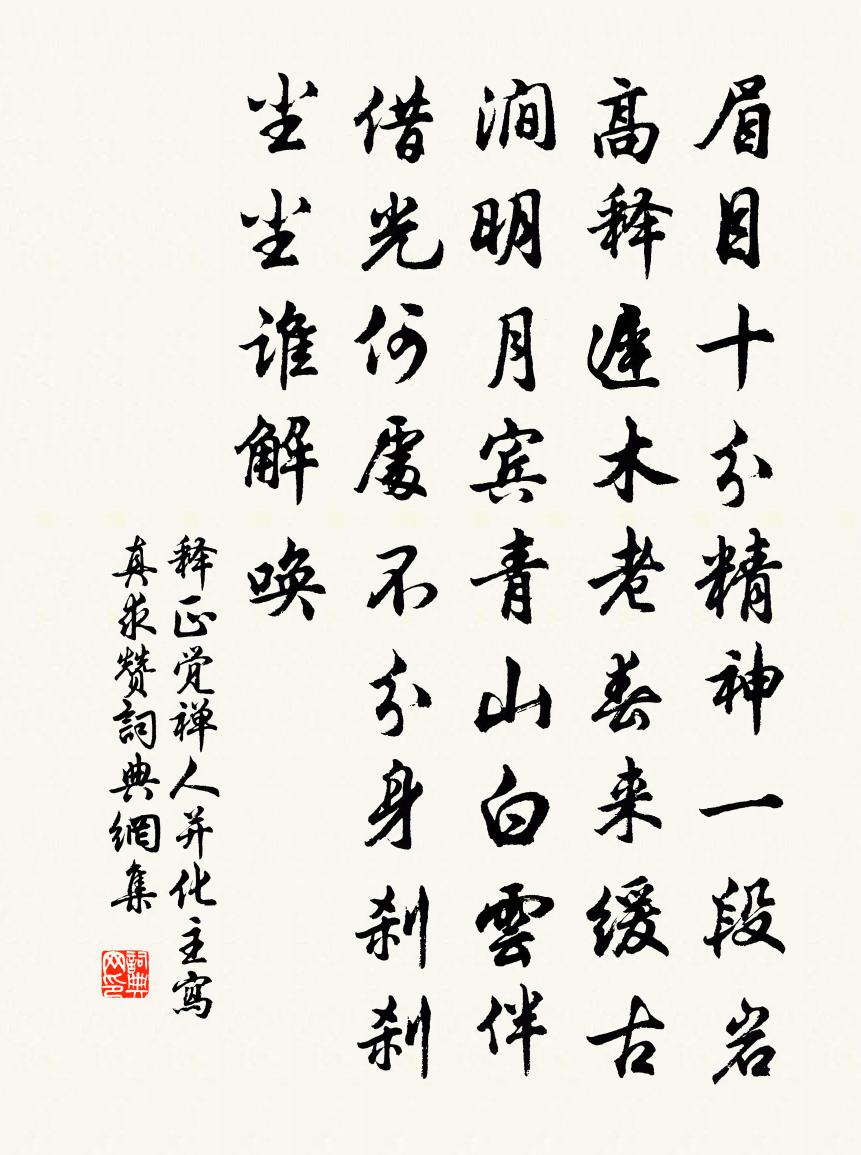 眉目十分精神一段岩
高释遲木老春来缓古
澗明月宾青山白雲伴
借光何處不分身刹刹
尘尘谁解唤
释正觉禅人并化主寫
真求赞詞典網集
詞典网印